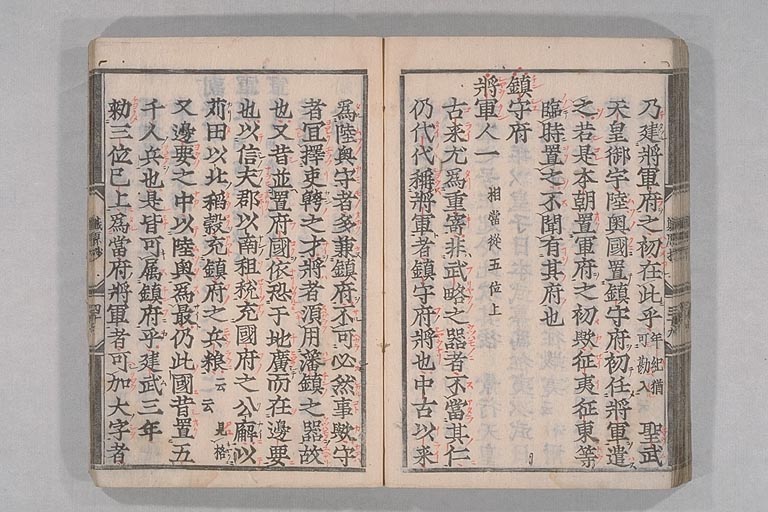 乃建將軍府之初在此乎年紀猶可勘入 聖武
天皇御宇陸奥國置鎮守府初任將軍遣
之若是本朝置軍府之初歟征夷征東等
臨時置之不聞有其府也
鎮守府
將軍一人 相當從五位上
古来尤爲重寄非武略之器者不當其仁
仍代代稱將軍者鎮守府將也中古以来
爲陸奥守者多兼鎮府不可必然事歟守
者冝擇吏幹之才將者須用藩鎮之器故
也又昔並置府國依恐于地廣而在邊要
也以信夫郡以南租税充國府之公廨以
苅田以北稻穀充鎮府之兵粮云云見格
又邊要之中以陸奥爲最仍此國昔置五
千人兵也是皆可属鎮府乎建武三年
勅三位已上爲當府將軍者可加大字者